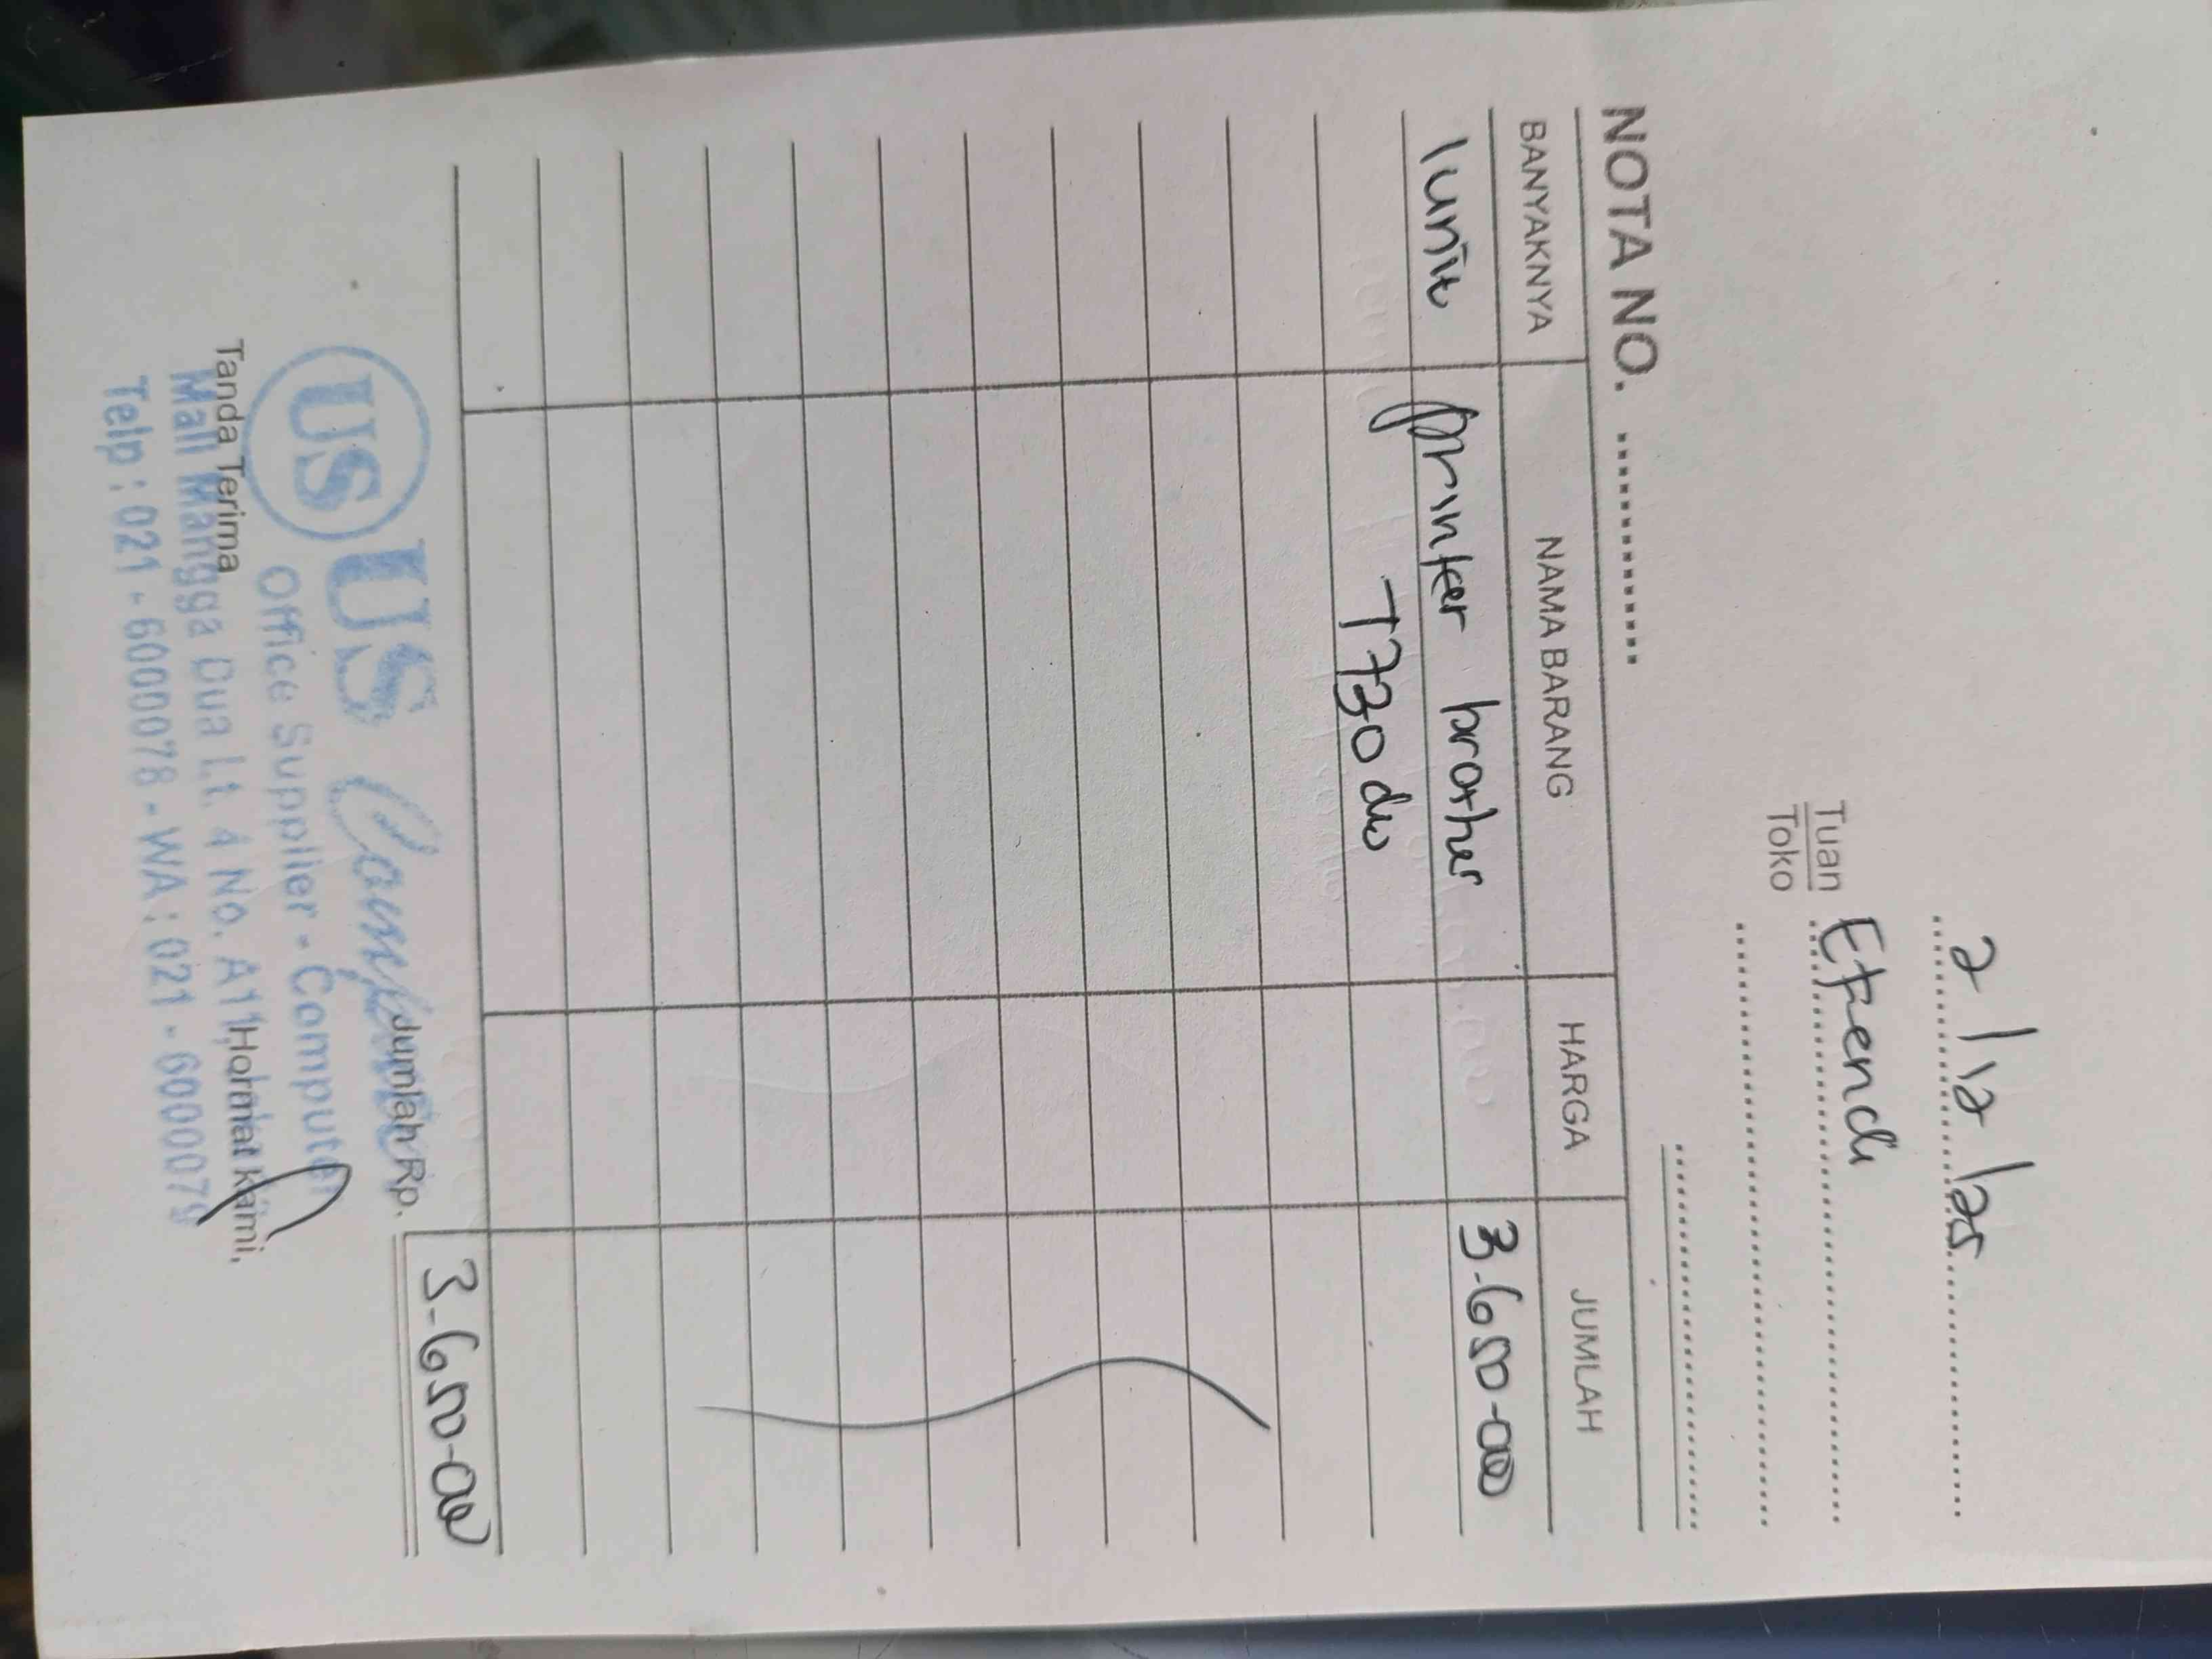 2/12/25
Tuan Efendi
Toko
NOTA NO.
BANYAKNYA NAMA BARANG HARGA JUMLAH
1 unit printer brother 3.650.000
T730dw
Jumlah Rp. 3.650.000
US US Computer
Office Supplier - Computer
Tanda Terima Hormat kami,
Mall Mangga Dua Lt. 4 No. A11
Telp : 021 - 6000078 - WA : 021 - 6000079